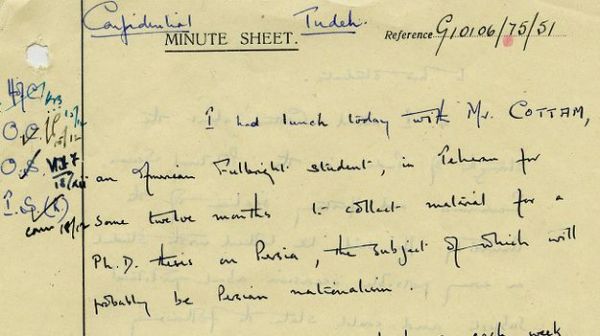 Confidential Tudeh.
MINUTE SHEET. Reference G10106/75/51
I had lunch today with Mr. COTTAM,
an American Fulbright student, in Teheran for
some twelve months to collect material for a
Ph.D. thesis on Persia, the subject of which will
probably be Persian nationalism.
H of C
O.C.
O.S.
I.S.
each week